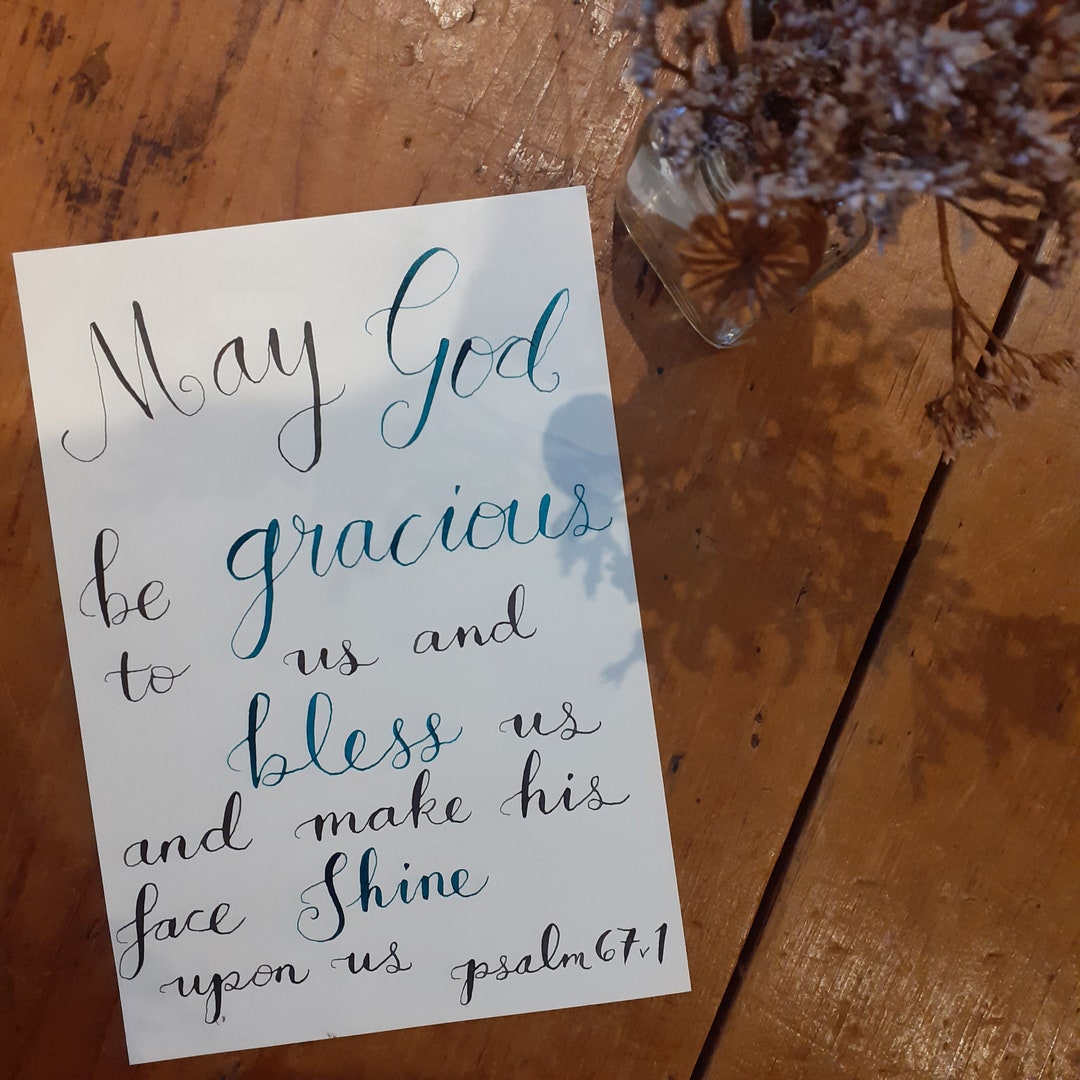 May God
be gracious
to us and
bless us
and make his
face Shine
upon us psalm 67v1